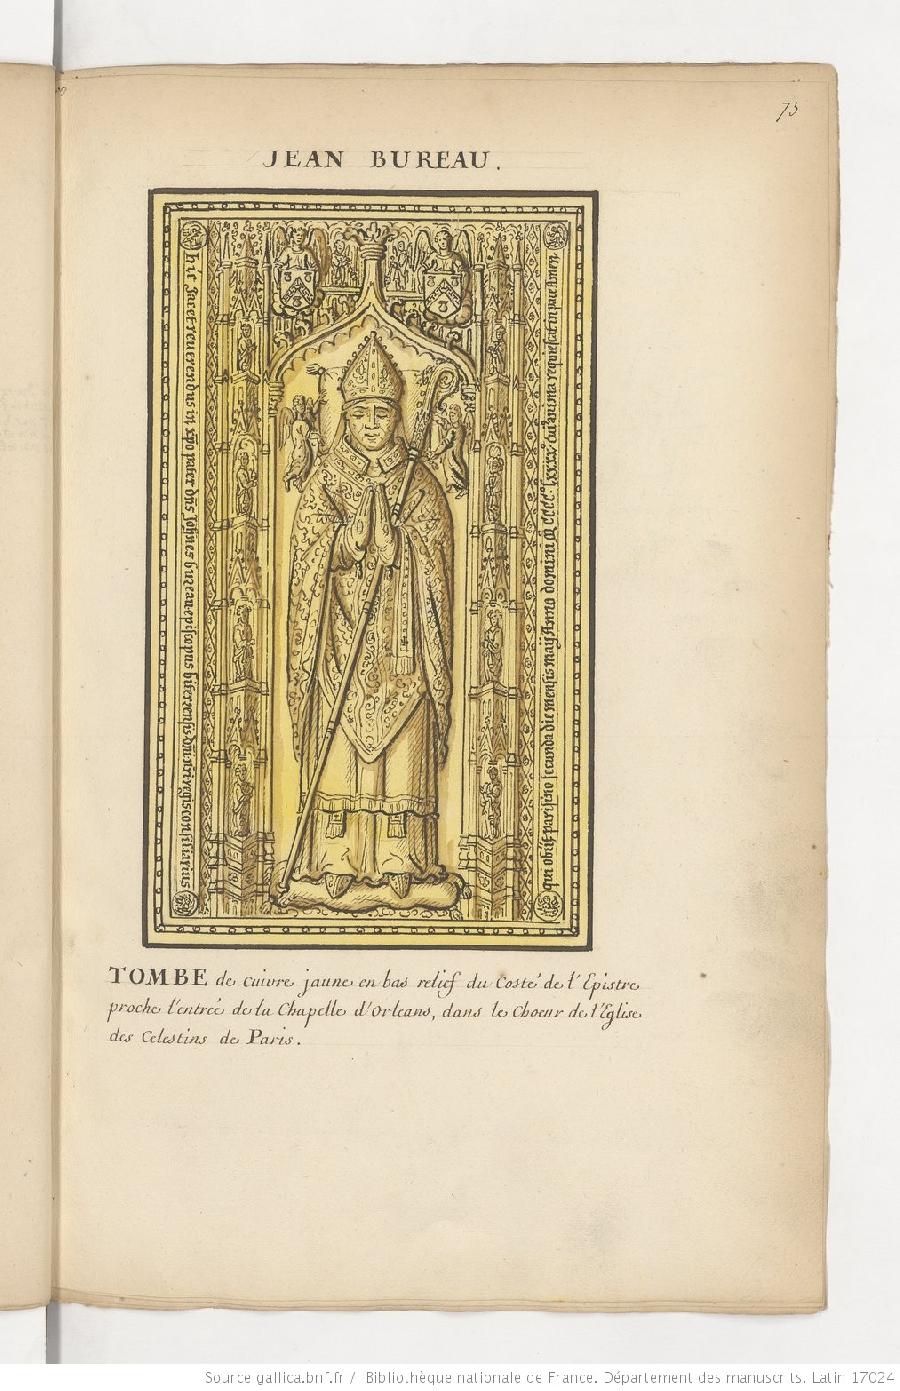 75
JEAN BUREAU.
hic Jacet reverendus in xpo pater dns Johnes bureau episcopus biterrensis dni nri regis consiliarius
qui obiit parisius secunda die mensis maij Anno domini M CCCC lxxxx cui anima requiescat in pace Amen
TOMBE de cuivre jaune en bas relief du Costé de l'Epistre
proche l'entrée de la Chapelle d'Orleans, dans le Choeur de l'Eglise
des Celestins de Paris.
Source gallica.bnf.fr / Bibliothèque nationale de France. Département des manuscrits. Latin 17024